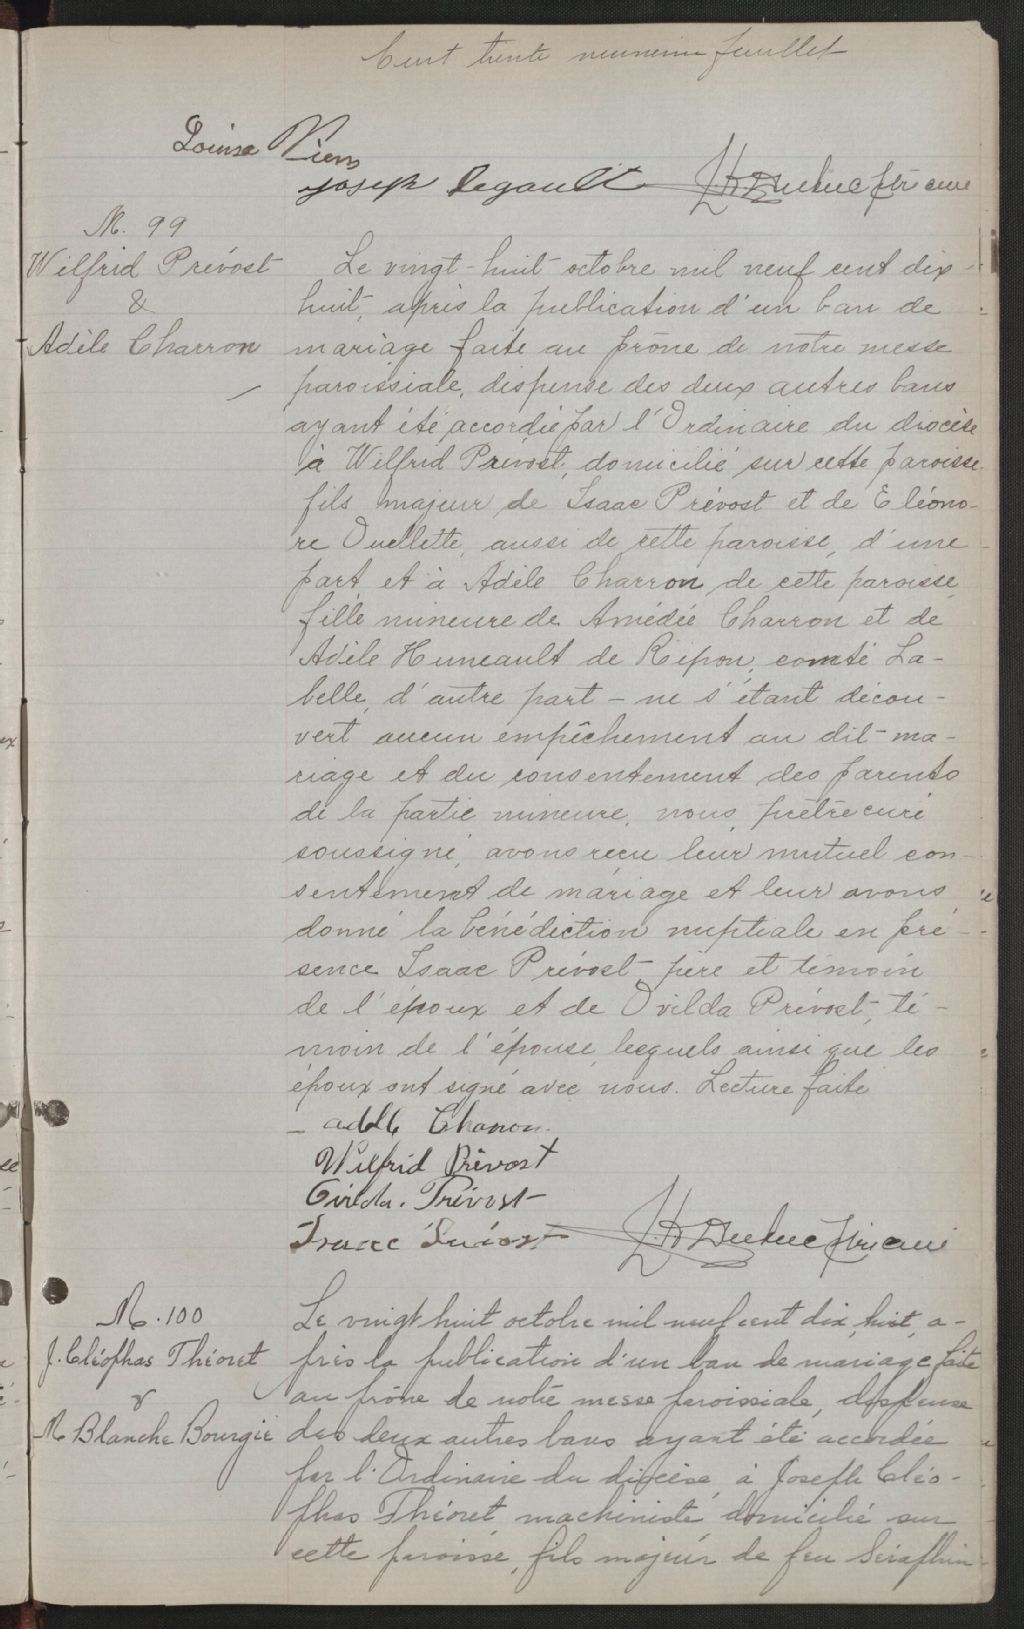 Cent trente neuvième feuillet
Louisa Viens
Joseph Legault J H Duduc ptre curé
M. 99
Wilfrid Prévost
&
Adèle Charron
Le vingt-huit octobre mil neuf cent dix-
huit, après la publication d'un ban de
mariage faite au prône de notre messe
paroissiale, dispense des deux autres bans
ayant été accordée par l'Ordinaire du diocèse
à Wilfrid Prévost, domicilié sur cette paroisse
fils majeur de Isaac Prévost et de Eléono-
re Ouellette, aussi de cette paroisse, d'une
part, et à Adèle Charron de cette paroisse,
fille mineure de Amédée Charron et de
Adèle Huneault de Ripon, comté La-
belle, d'autre part - ne s'étant décou-
vert aucun empêchement au dit ma-
riage et du consentement des parents
de la partie mineure, nous, prêtre curé
soussigné, avons reçu leur mutuel con-
sentement de mariage et leur avons
donné la bénédiction nuptiale en pré-
sence Isaac Prévost père et témoin
de l'époux et de Ovilda Prévost, té-
moin de l'épouse, lesquels ainsi que les
époux ont signé avec nous. Lecture faite
Adèle Charron.
Wilfrid Prévost
Ovilda. Prévost
Isaac Prévost J. H Duduc ptre curé
M. 100
J. Cléophas Théoret
&
M Blanche Bourgie
Le vingt huit octobre mil neuf cent dix huit, a-
près la publication d'un ban de mariage faite
au prône de notre messe paroissiale, dispense
des deux autres bans ayant été accordée
par l'Ordinaire du diocèse, à Joseph Cléo-
phas Théoret machiniste domicilié sur
cette paroisse, fils majeur de feu Séraphin